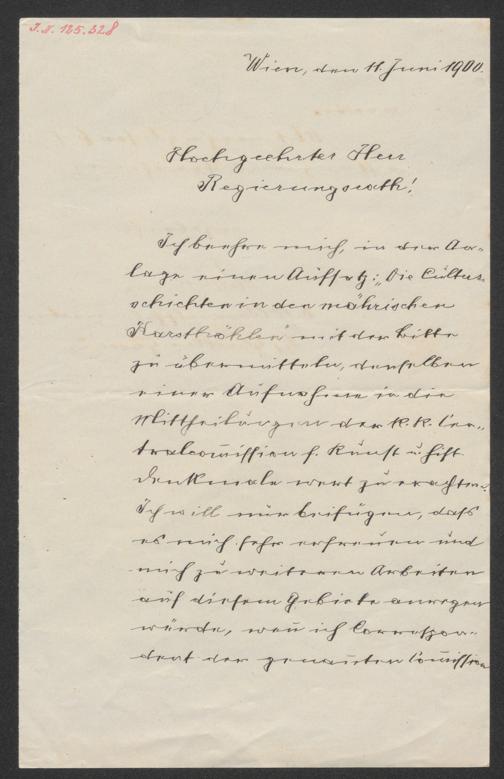 J.N. 125.328
Wien, den 11. Juni 1900.
Hochgeehrter Herr
Regierungsrath!
Ich beehre mich, in der An-
lage einen Aufsatz: „Die Cultur-
schichten in den mährischen
Karsthöhlen" mit der Bitte
zu übermitteln, denselben
einer Aufnahme in die
Mittheilungen der k. k. Cen-
tralcom̅ission f. Kunst u. hist.
Denkmale wert zu erachten.
Ich will nur beifügen, dass
es mich sehr erfreuen und
mich zu weiteren Arbeiten
auf diesem Gebiete anregen
würde, wen̅ ich Correspon-
dent der genan̅ten Com̅ission